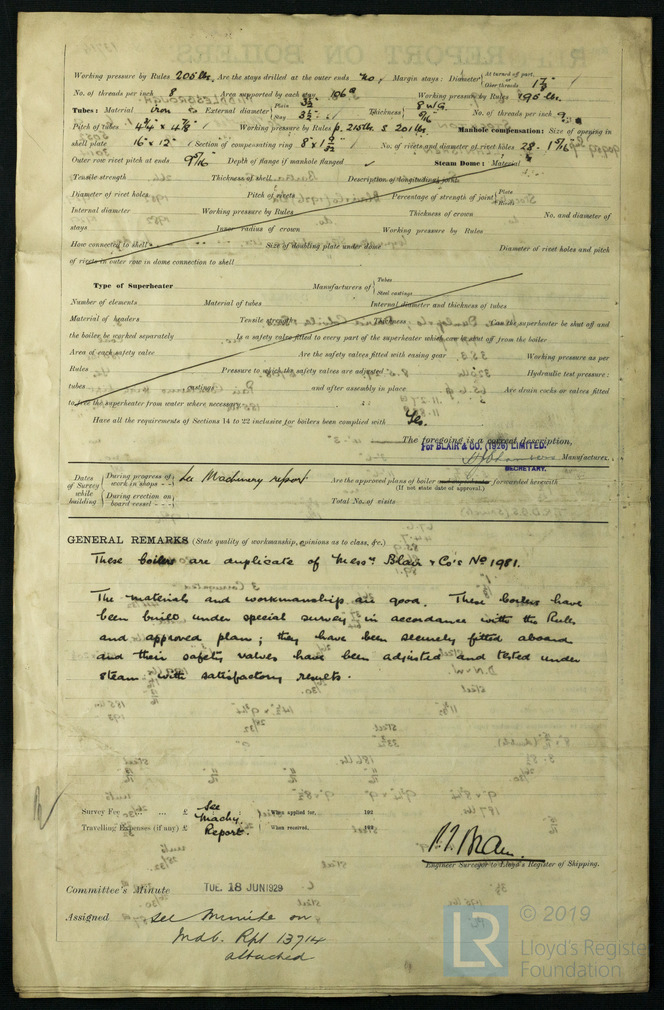 Working pressure by Rules 205 lbs. Are the stays drilled at the outer ends No. Margin stays: Diameter { At turned off part, or Over threads 1 7/8
No. of threads per inch 8 Area supported by each stay Working pressure by Rules 195 lbs.
Tubes: Material iron External diameter { Plain 3 1/2 Stay 3 1/2 Thickness { 8 WG 5/16 No. of threads per inch 9
Pitch of tubes 4 3/4 x 4 7/8 Working pressure by Rules p. 215 lbs. s 201 lbs. Manhole compensation: Size of opening in
shell plate 16" x 12" Section of compensating ring No. of rivets and diameter of rivet holes 28 - 1 5/16
Outer row rivet pitch at ends 9 5/16" Depth of flange if manhole flanged Steam Dome: Material
Tensile strength Thickness of shell Description of longitudinal joint
Diameter of rivet holes Pitch of rivets Percentage of strength of joint { Plate Rivets
Internal diameter Working pressure by Rules Thickness of crown No. and diameter of
stays Inner radius of crown Working pressure by Rules
How connected to shell Size of doubling plate under dome Diameter of rivet holes and pitch
of rivets in outer row in dome connection to shell
Type of Superheater Manufacturers of { Tubes Steel castings
Number of elements Material of tubes Internal diameter and thickness of tubes
Material of headers Tensile strength Thickness Can the superheater be shut off and
the boiler be worked separately Is a safety valve fitted to every part of the superheater which can be shut off from the boiler
Area of each safety valve Are the safety valves fitted with easing gear Working pressure as per
Rules Pressure to which the safety valves are adjusted Hydraulic test pressure:
tubes castings and after assembly in place Are drain cocks or valves fitted
to free the superheater from water where necessary
Have all the requirements of Sections 14 to 22 inclusive for boilers been complied with Yes.
The foregoing is a correct description,
FOR BLAIR & CO. (1926) LIMITED.
Manufacturers.
SECRETARY.
Dates of Survey while building { During progress of work in shops - - See Machinery report Are the approved plans of boiler forwarded herewith
(If not state date of approval.)
During erection on board vessel - - - Total No. of visits
GENERAL REMARKS (State quality of workmanship, opinions as to class, &c.)
These boilers are duplicate of Messrs Blair & Co's No 1981.
The materials and workmanship are good. These boilers have
been built under special survey in accordance with the Rules
and approved plan; they have been securely fitted aboard
and their safety valves have been adjusted and tested under
steam with satisfactory results.
Survey Fee ... ... £ See When applied for, 192
Travelling Expenses (if any) £ Machy Report. When received, 192
Engineer Surveyor to Lloyd's Register of Shipping.
Committee's Minute TUE. 18 JUN 1929
Assigned See Minute on
Mdb. Rpt 13714
attached
© 2019
LR
Lloyd's Register
Foundation